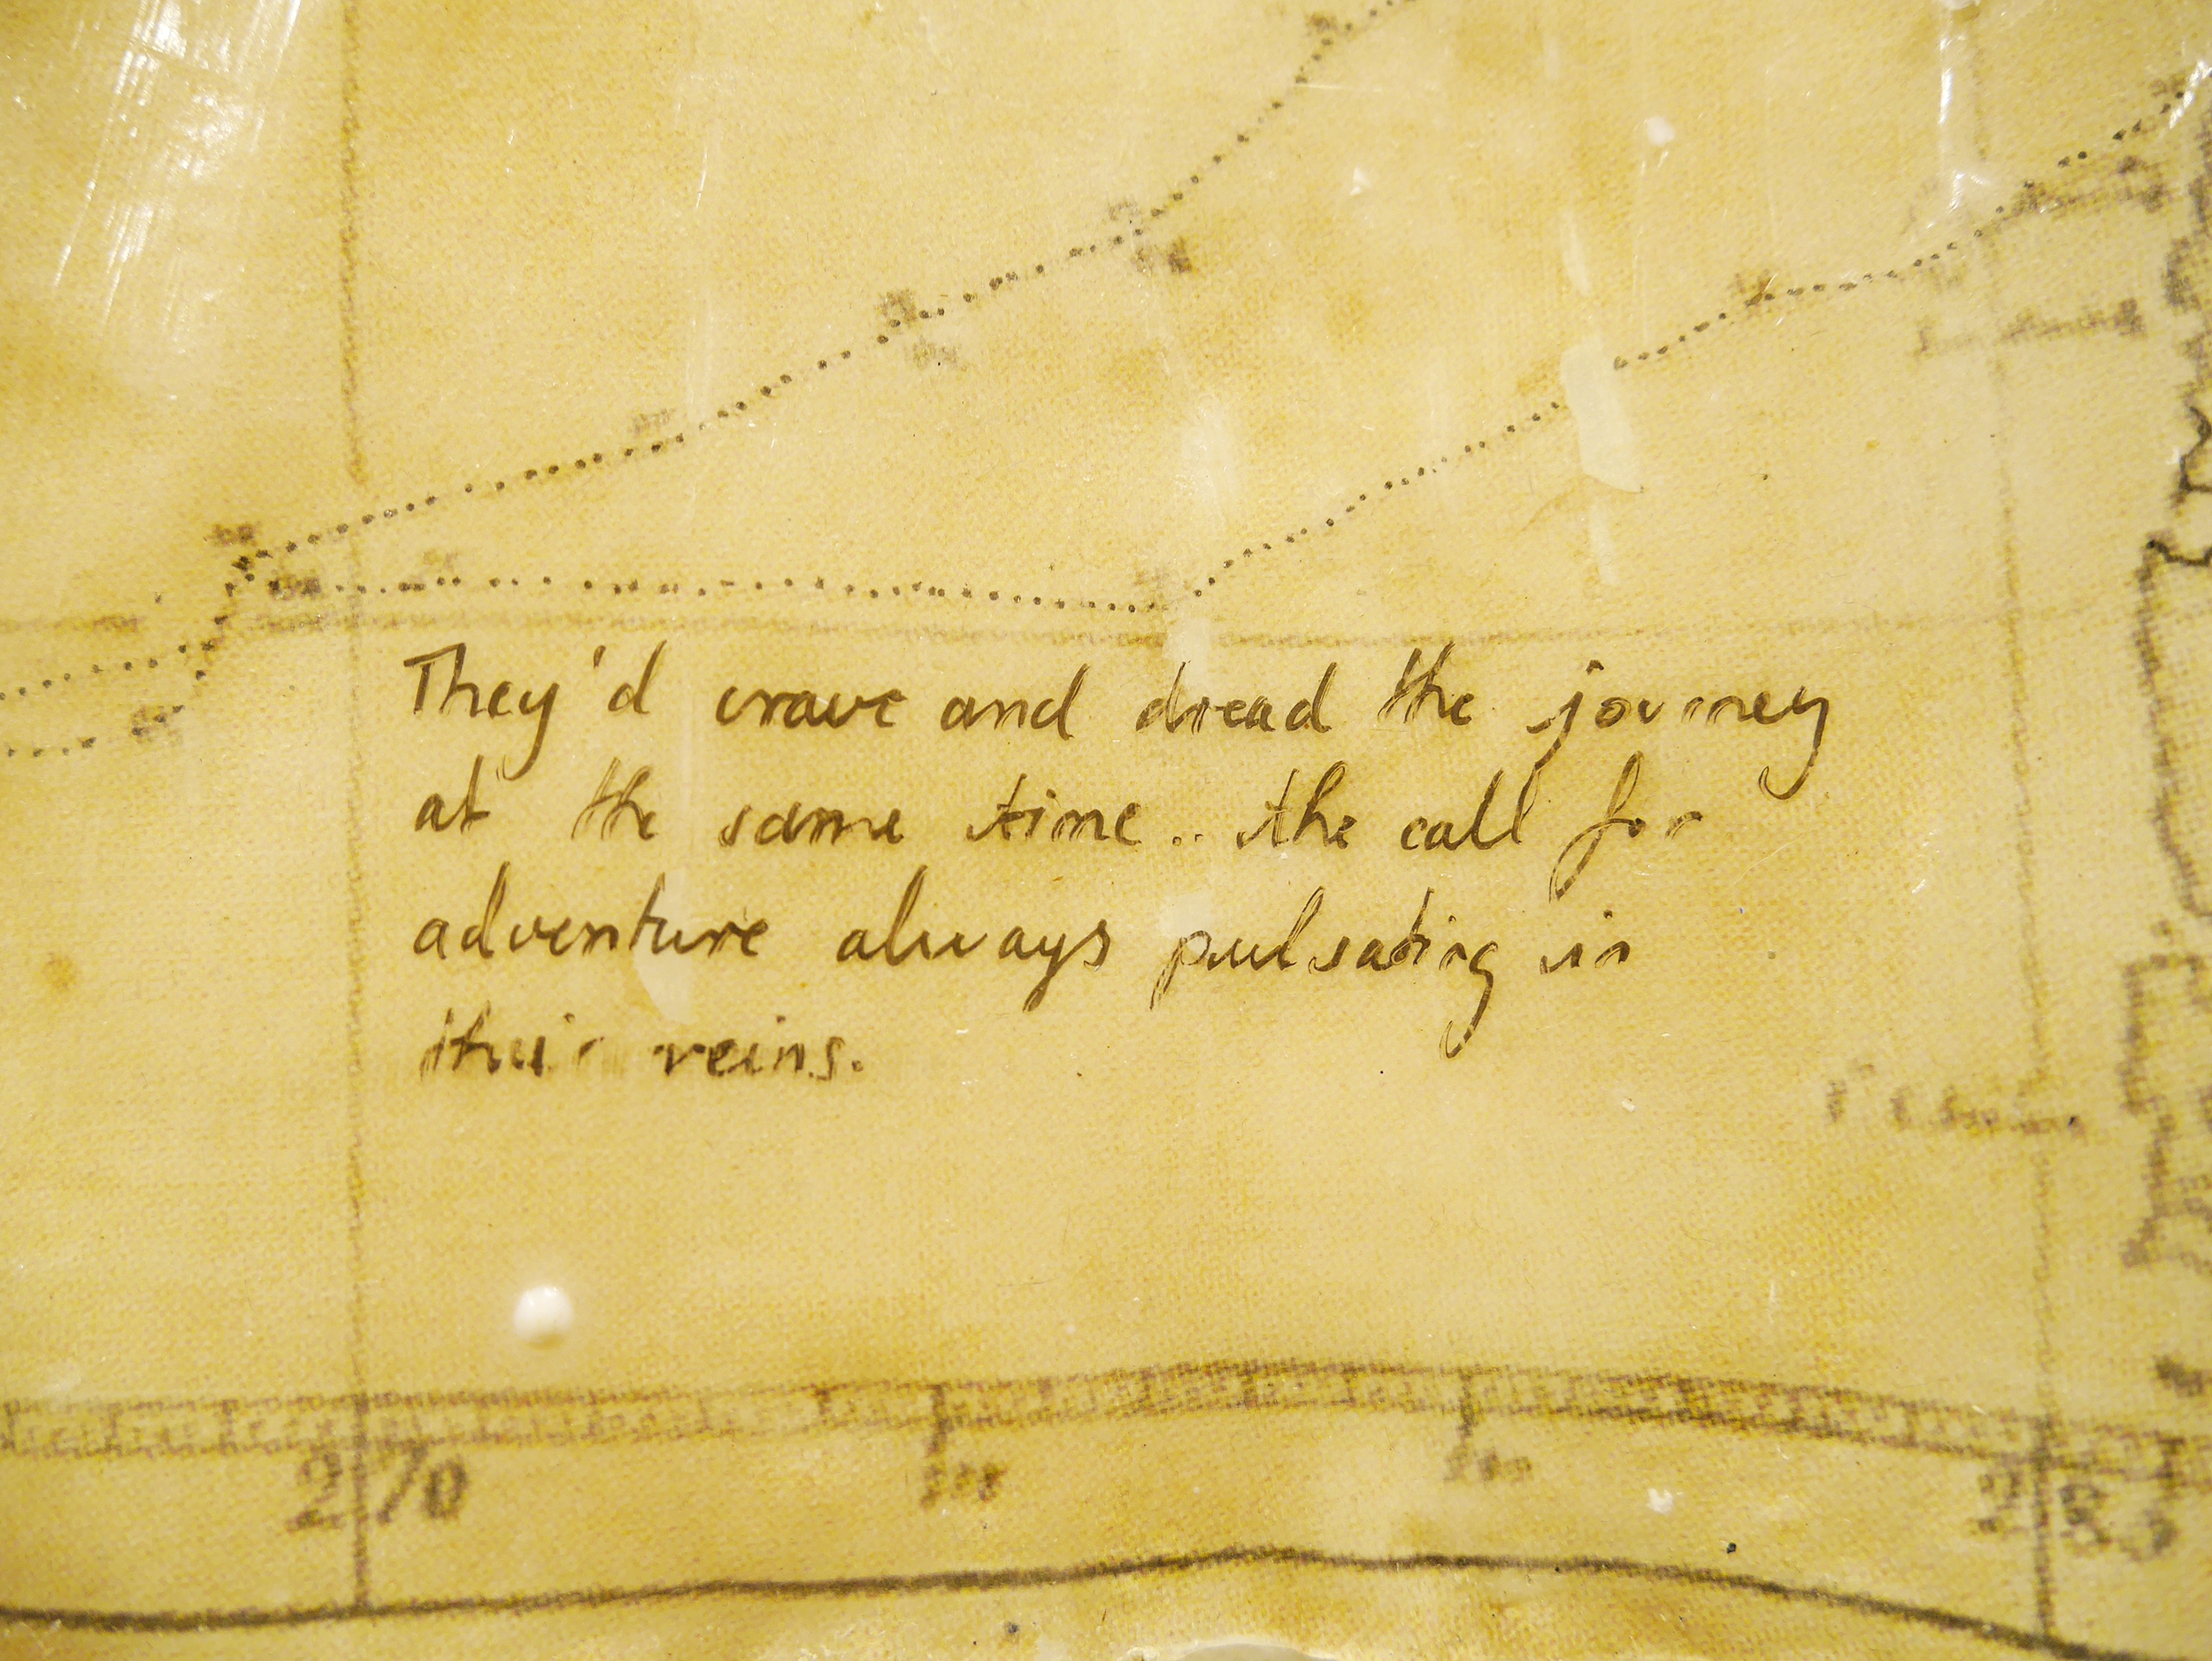 They'd crave and dread the journey
at the same time.. the call for
adventure always pulsating in
their veins.
270